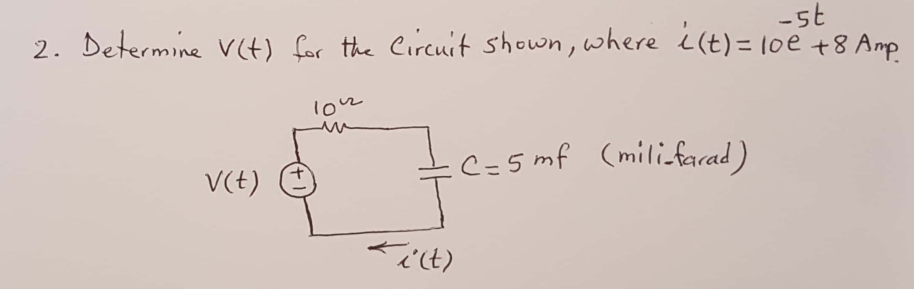 2. Determine V(t) for the Circuit shown, where i(t) = 10e^-5t + 8 Amp.
10Ω
V(t)
+
-
C = 5 mf (mili-farad)
i(t)